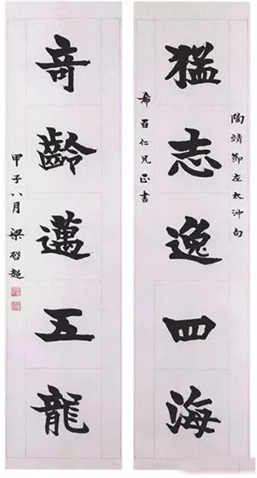 陶靖節左太沖句
猛志逸四海
希仁兄正書
奇齡邁五龍
甲子八月 梁啓超